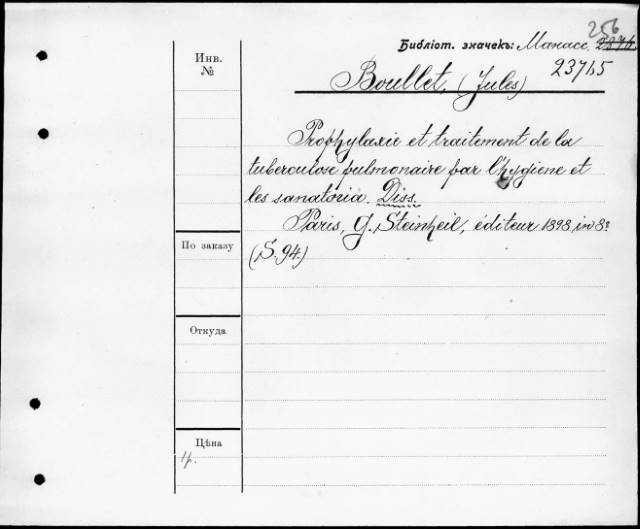 256
Библіот. значекъ: Манасс. 2376.
23715
Инв.
№
Boullet, (Jules)
Prophylaxie et traitement de la
tuberculose pulmonaire par l'hygiene et
les sanatoria. Diss.
Paris, G. Steinheil, éditeur 1898, in 8º
(S. 94.)
По заказу
Откуда
Цѣна
1р.